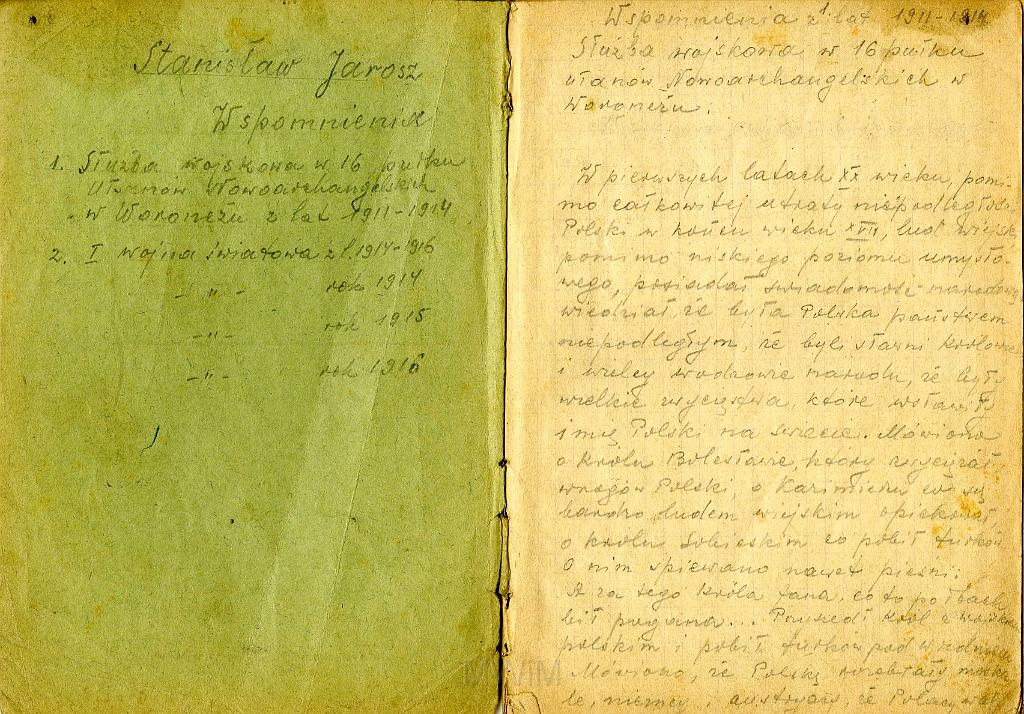 Stanisław Jarosz
Wspomnienia
1. Służba wojskowa w 16 pułku
Ułanów Nowoarchangielskich
w Woroneżu z lat 1911-1914
2. I wojna światowa z l. 1914-1916
— „ — rok 1914
— „ — rok 1915
— „ — rok 1916
Wspomnienia z lat 1911-1914
Służba wojskowa w 16 pułku
ułanów Nowoarchangelskich w
Woroneżu.
W pierwszych latach XX wieku, pomi-
mo całkowitej utraty niepodległości
Polski w końcu wieku XVIII, lud wiejski
pomimo niskiego poziomu umysło-
wego, posiadał świadomość narodową
wiedział, że była Polska państwem
niepodległym, że byli sławni królowie
i wielcy wodzowie narodu, że były
wielkie zwycięstwa, które wsławiły
imię Polski na świecie. Mówiono
o królu Bolesławie, który zwyciężał
wrogów Polski, o Kazimierzu co się
bardzo ludem wiejskim opiekował,
o królu Sobieskim co pobił turków
O nim śpiewano nawet pieśni:
A za tego króla Jana, co to po łbach
bił pogana... Poszedł król z wojskiem
polskim i pobił turków pod Wiedniem
Mówiono, że Polskę rozebrały moska-
le, niemcy, austryaki, że Polacy
MWIM